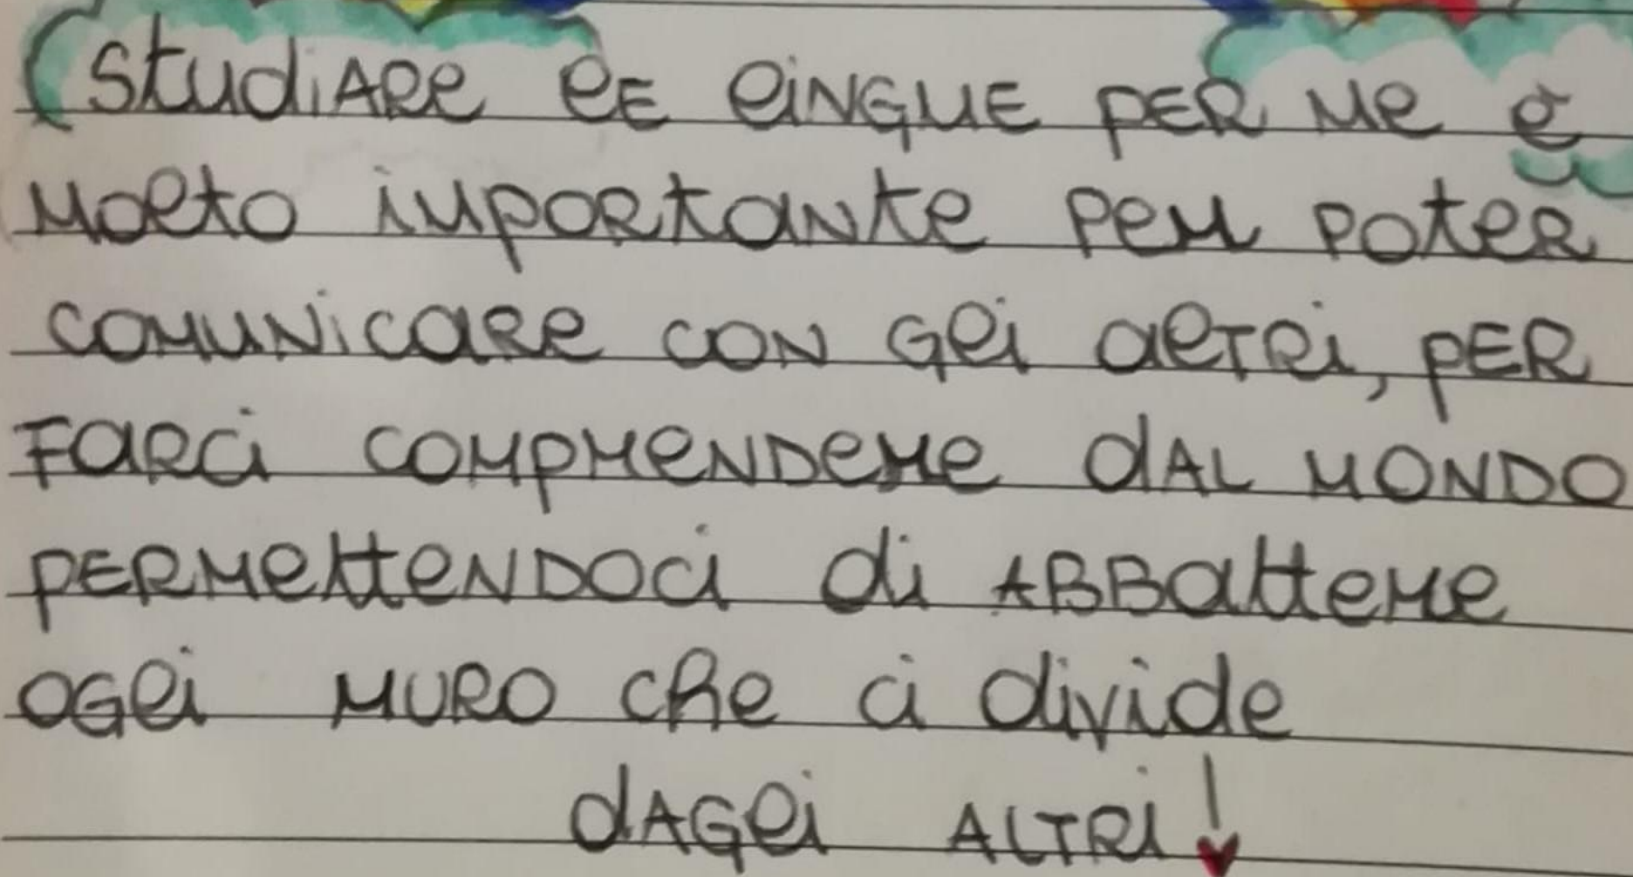 StudiARe lE liNGUE PER Me è
Molto iMPORtaNte PeR POteR
COMUNicaRe CON Gli alTRi, PER
FaRci COMPReNDeRe dAL MONDO
PERMetteNDOci di ABBatteRe
OGli MURO che ci divide
dAGli ALTRi!